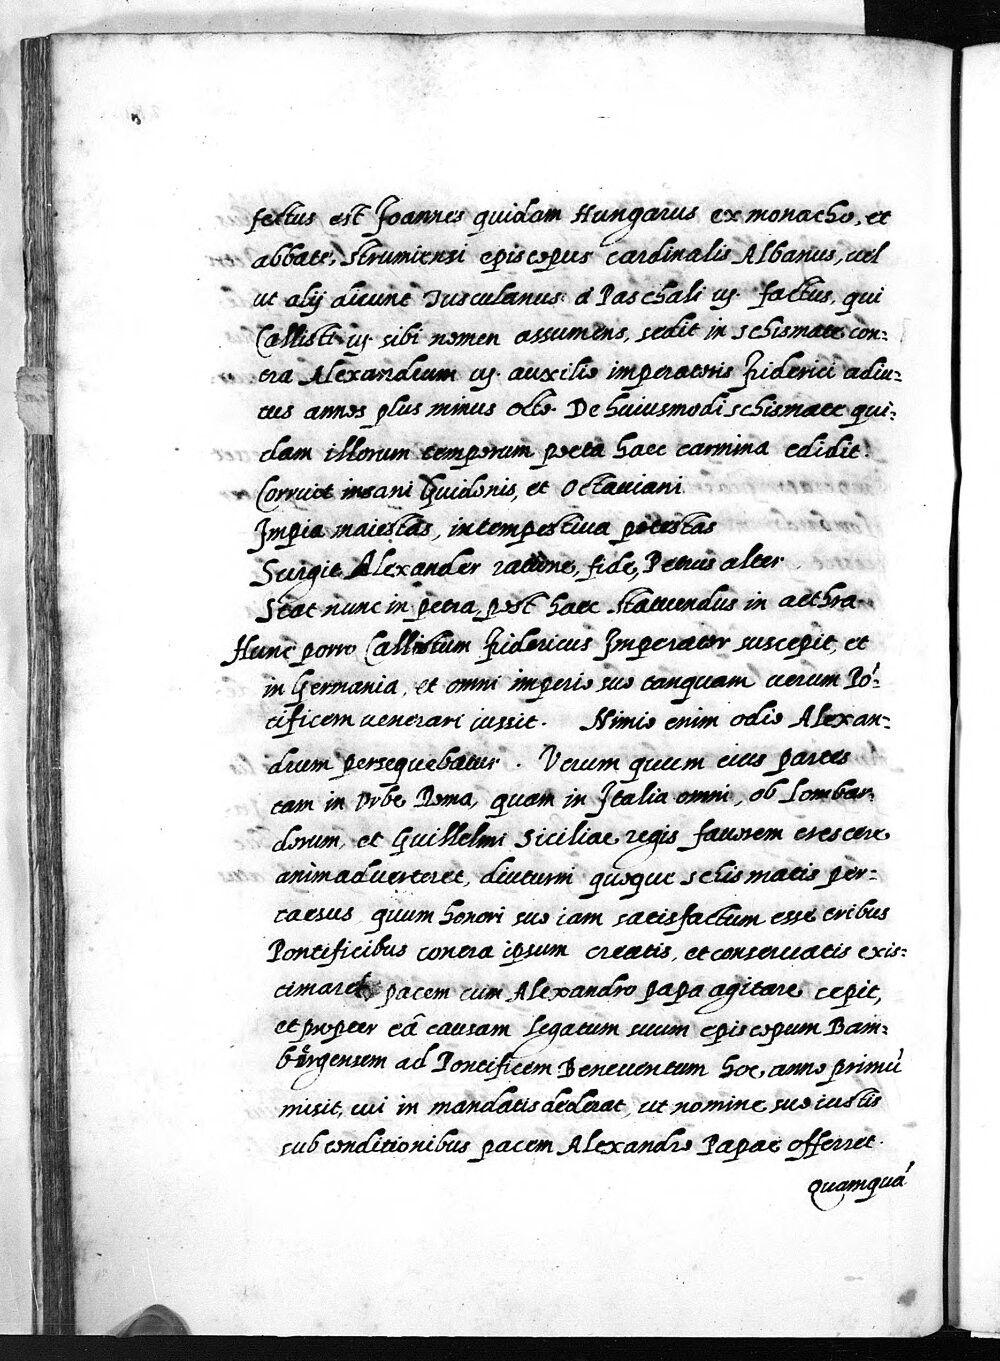 fectus est Joannes quidam Hungarus ex monacho, et
abbate, Strumiensi episcopus cardinalis Albanus, vel
ut alij dicunt Tusculanus a Paschali iij. factus, qui
Callisti iij. sibi nomen assumens, sedit in schismate con-
tra Alexandrum iij. auxilio imperatoris Friderici adiu-
tus annos plus minus octo. De huiusmodi schismate qui-
dam illorum temporum poeta haec carmina edidit:
Corruit insani Guidonis, et Octaviani
Impia maiestas, intempestiva potestas
Surgit Alexander ratione, fide, Petrus alter
Stat nunc in petra, post haec statuendus in aethra
Hunc porro Callistum Fridericus Imperator suscepit, et
in Germania, et omni imperio suo tanquam uerum Pō-
tificem uenerari iussit. Nimio enim odio Alexan-
drum persequebatur. Verum quum eius partes
tam in Vrbe Roma, quam in Italia omni, ob Lombar-
dorum, et Guilhelmi Siciliae regis fauorem crescere
animaduerteret, diuturni quoque schismatis per-
taesus quum honori suo iam satisfactum esse tribus
Pontificibus contra ipsum creatis, et conseruatis exis-
timaret, pacem cum Alexandro papa agitare cepit,
et propter eā causam legatum suum episcopum Bam-
bergensem ad Pontificem Beneuentum hoc anno primū
misit, cui in mandatis dederat, ut nomine suo iustis
sub conditionibus pacem Alexandro Papae offerret.
Quamquā